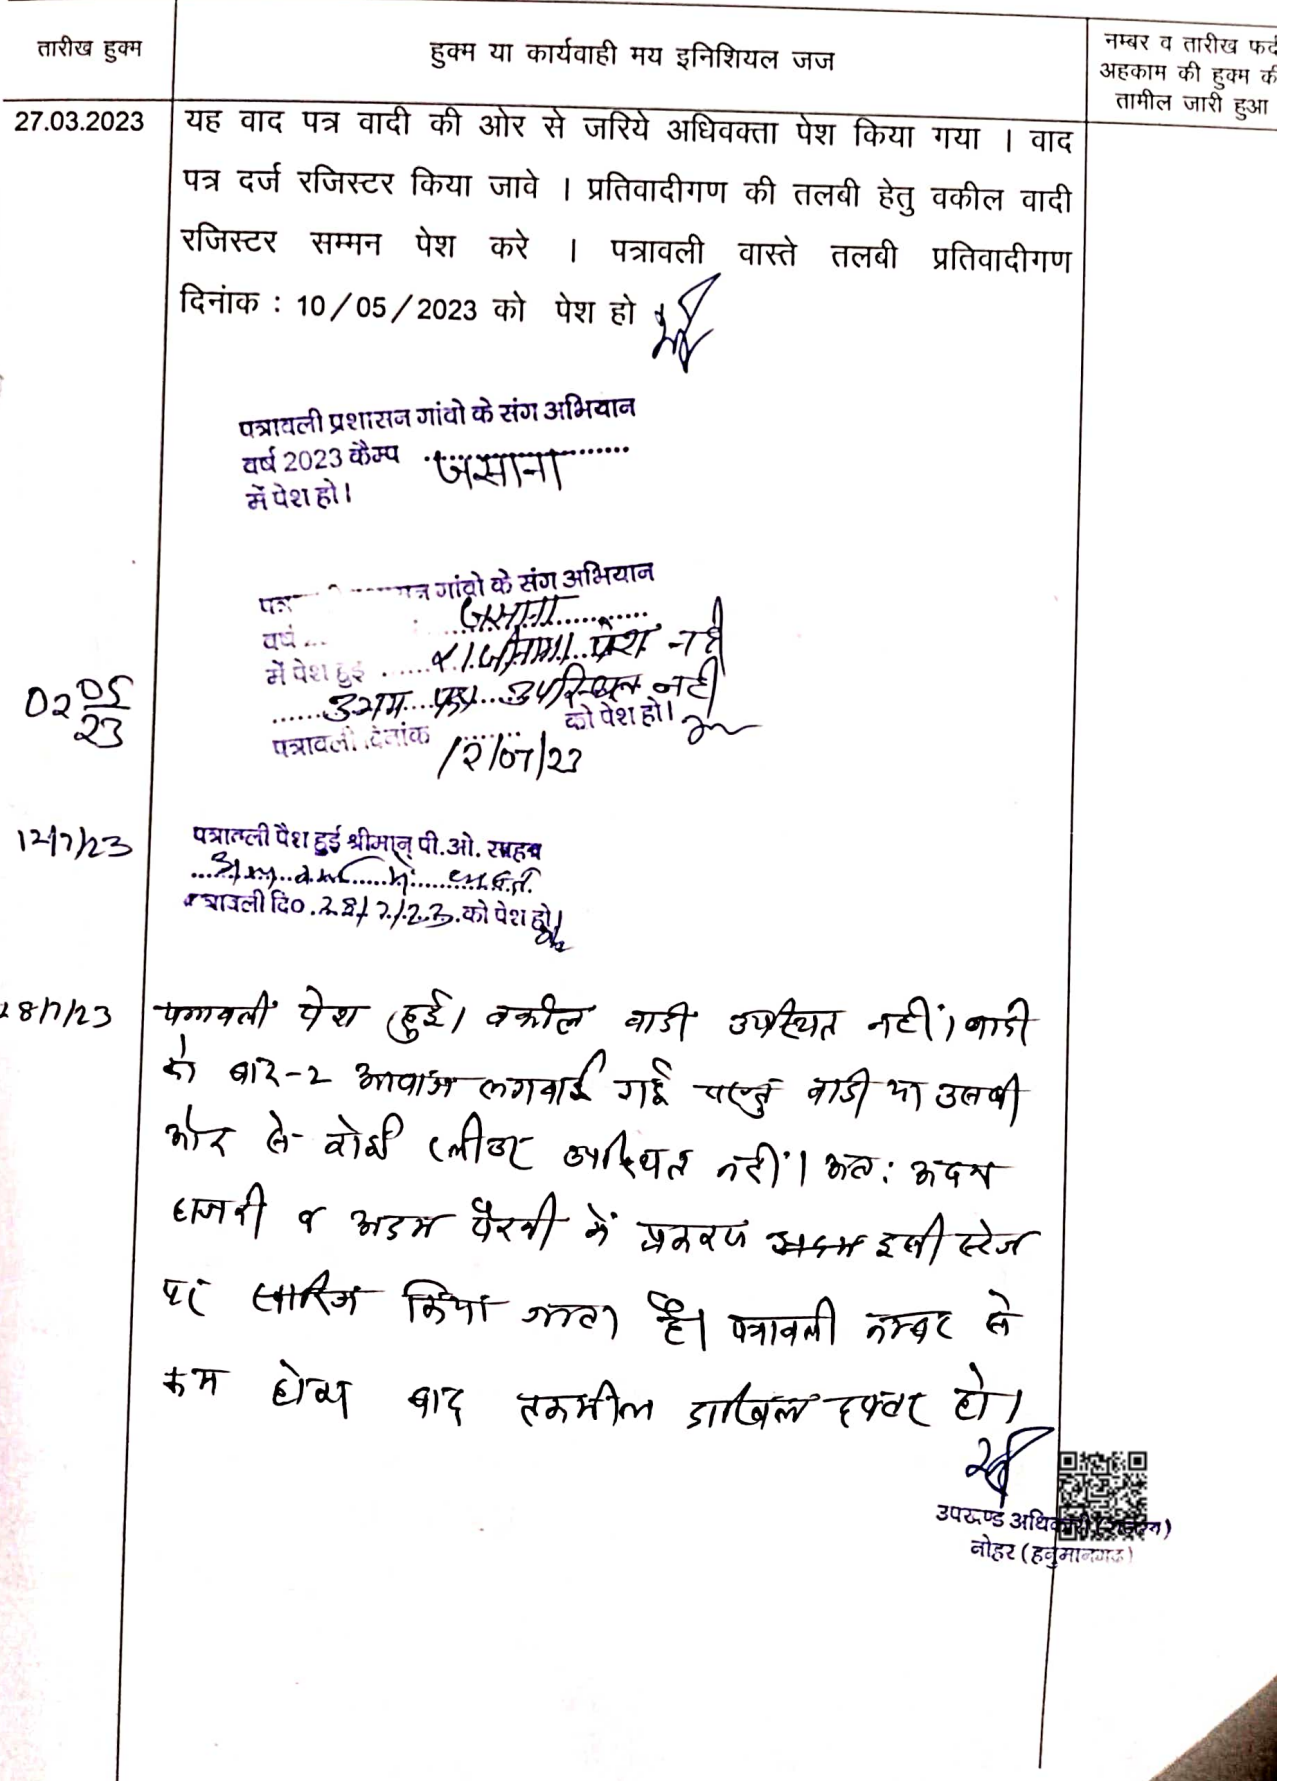 तारीख हुक्म
हुक्म या कार्यवाही मय इनिशियल जज
नम्बर व तारीख फर्द
अहकाम की हुक्म की
तामील जारी हुआ
27.03.2023
यह वाद पत्र वादी की ओर से जरिये अधिवक्ता पेश किया गया । वाद
पत्र दर्ज रजिस्टर किया जावे । प्रतिवादीगण की तलबी हेतु वकील वादी
रजिस्टर सम्मन पेश करे । पत्रावली वास्ते तलबी प्रतिवादीगण
दिनांक : 10/05/2023 को पेश हो
पत्रावली प्रशासन गांवो के संग अभियान
वर्ष 2023 कैम्प जसाना
में पेश हो।
गांवो के संग अभियान
वर्ष जसाना
02 05/23
में पेश हुई राजीनामा पेश नही
उभय पक्ष उपस्थित नही
पत्रावली दिनांक 12/07/23 को पेश हो।
12/7/23
पत्रावली पेश हुई श्रीमान् पी.ओ. साहब
पत्रावली दि० 28/7/23 को पेश हो।
28/7/23
पत्रावली पेश हुई। वकील वादी उपस्थित नहीं। वादी
को बार-2 आवाज लगवाई गई परन्तु वादी या उसकी
ओर से कोई प्लीडर उपस्थित नहीं। अतः अदम
हाजरी व अदम पैरवी में प्रकरण इसी स्टेज
पर खारिज किया जाता है। पत्रावली नम्बर से
कम होकर बाद तकमील दाखिल दफ्तर हो।
उपखण्ड अधिकारी (राजस्व)
नोहर (हनुमानगढ)